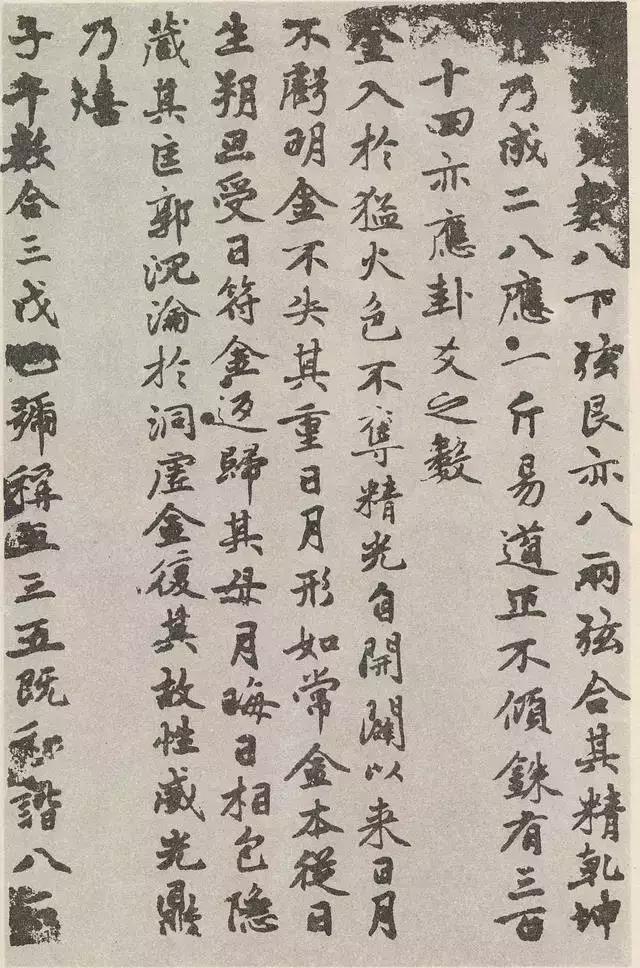 數八下弦艮亦八兩弦合其精乾坤
乃成二八應一斤易道正不傾銖有三百
十四亦應卦爻之數
金入於猛火色不奪精光自開闢以来日月
不虧明金不失其重日月形如常金本從日
生朔旦受日符金返歸其母月晦日相包隱
藏其匡郭沉淪於洞虛金復其故性威光鼎
乃熺
子午數合三戊己號稱五三五既和諧八